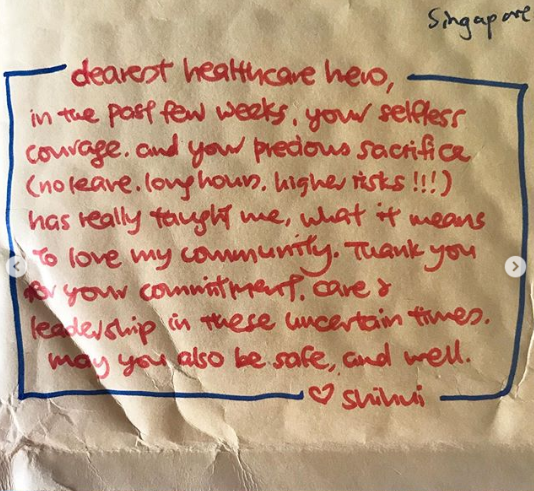 Singapore
dearest healthcare hero,
in the past few weeks, your selfless
courage, and your precious sacrifice
(no leave, long hours, higher risks !!!)
has really taught me, what it means
to love my community. Thank you
for your commitment, care &
leadership in these uncertain times.
may you also be safe, and well.
♡ shihui